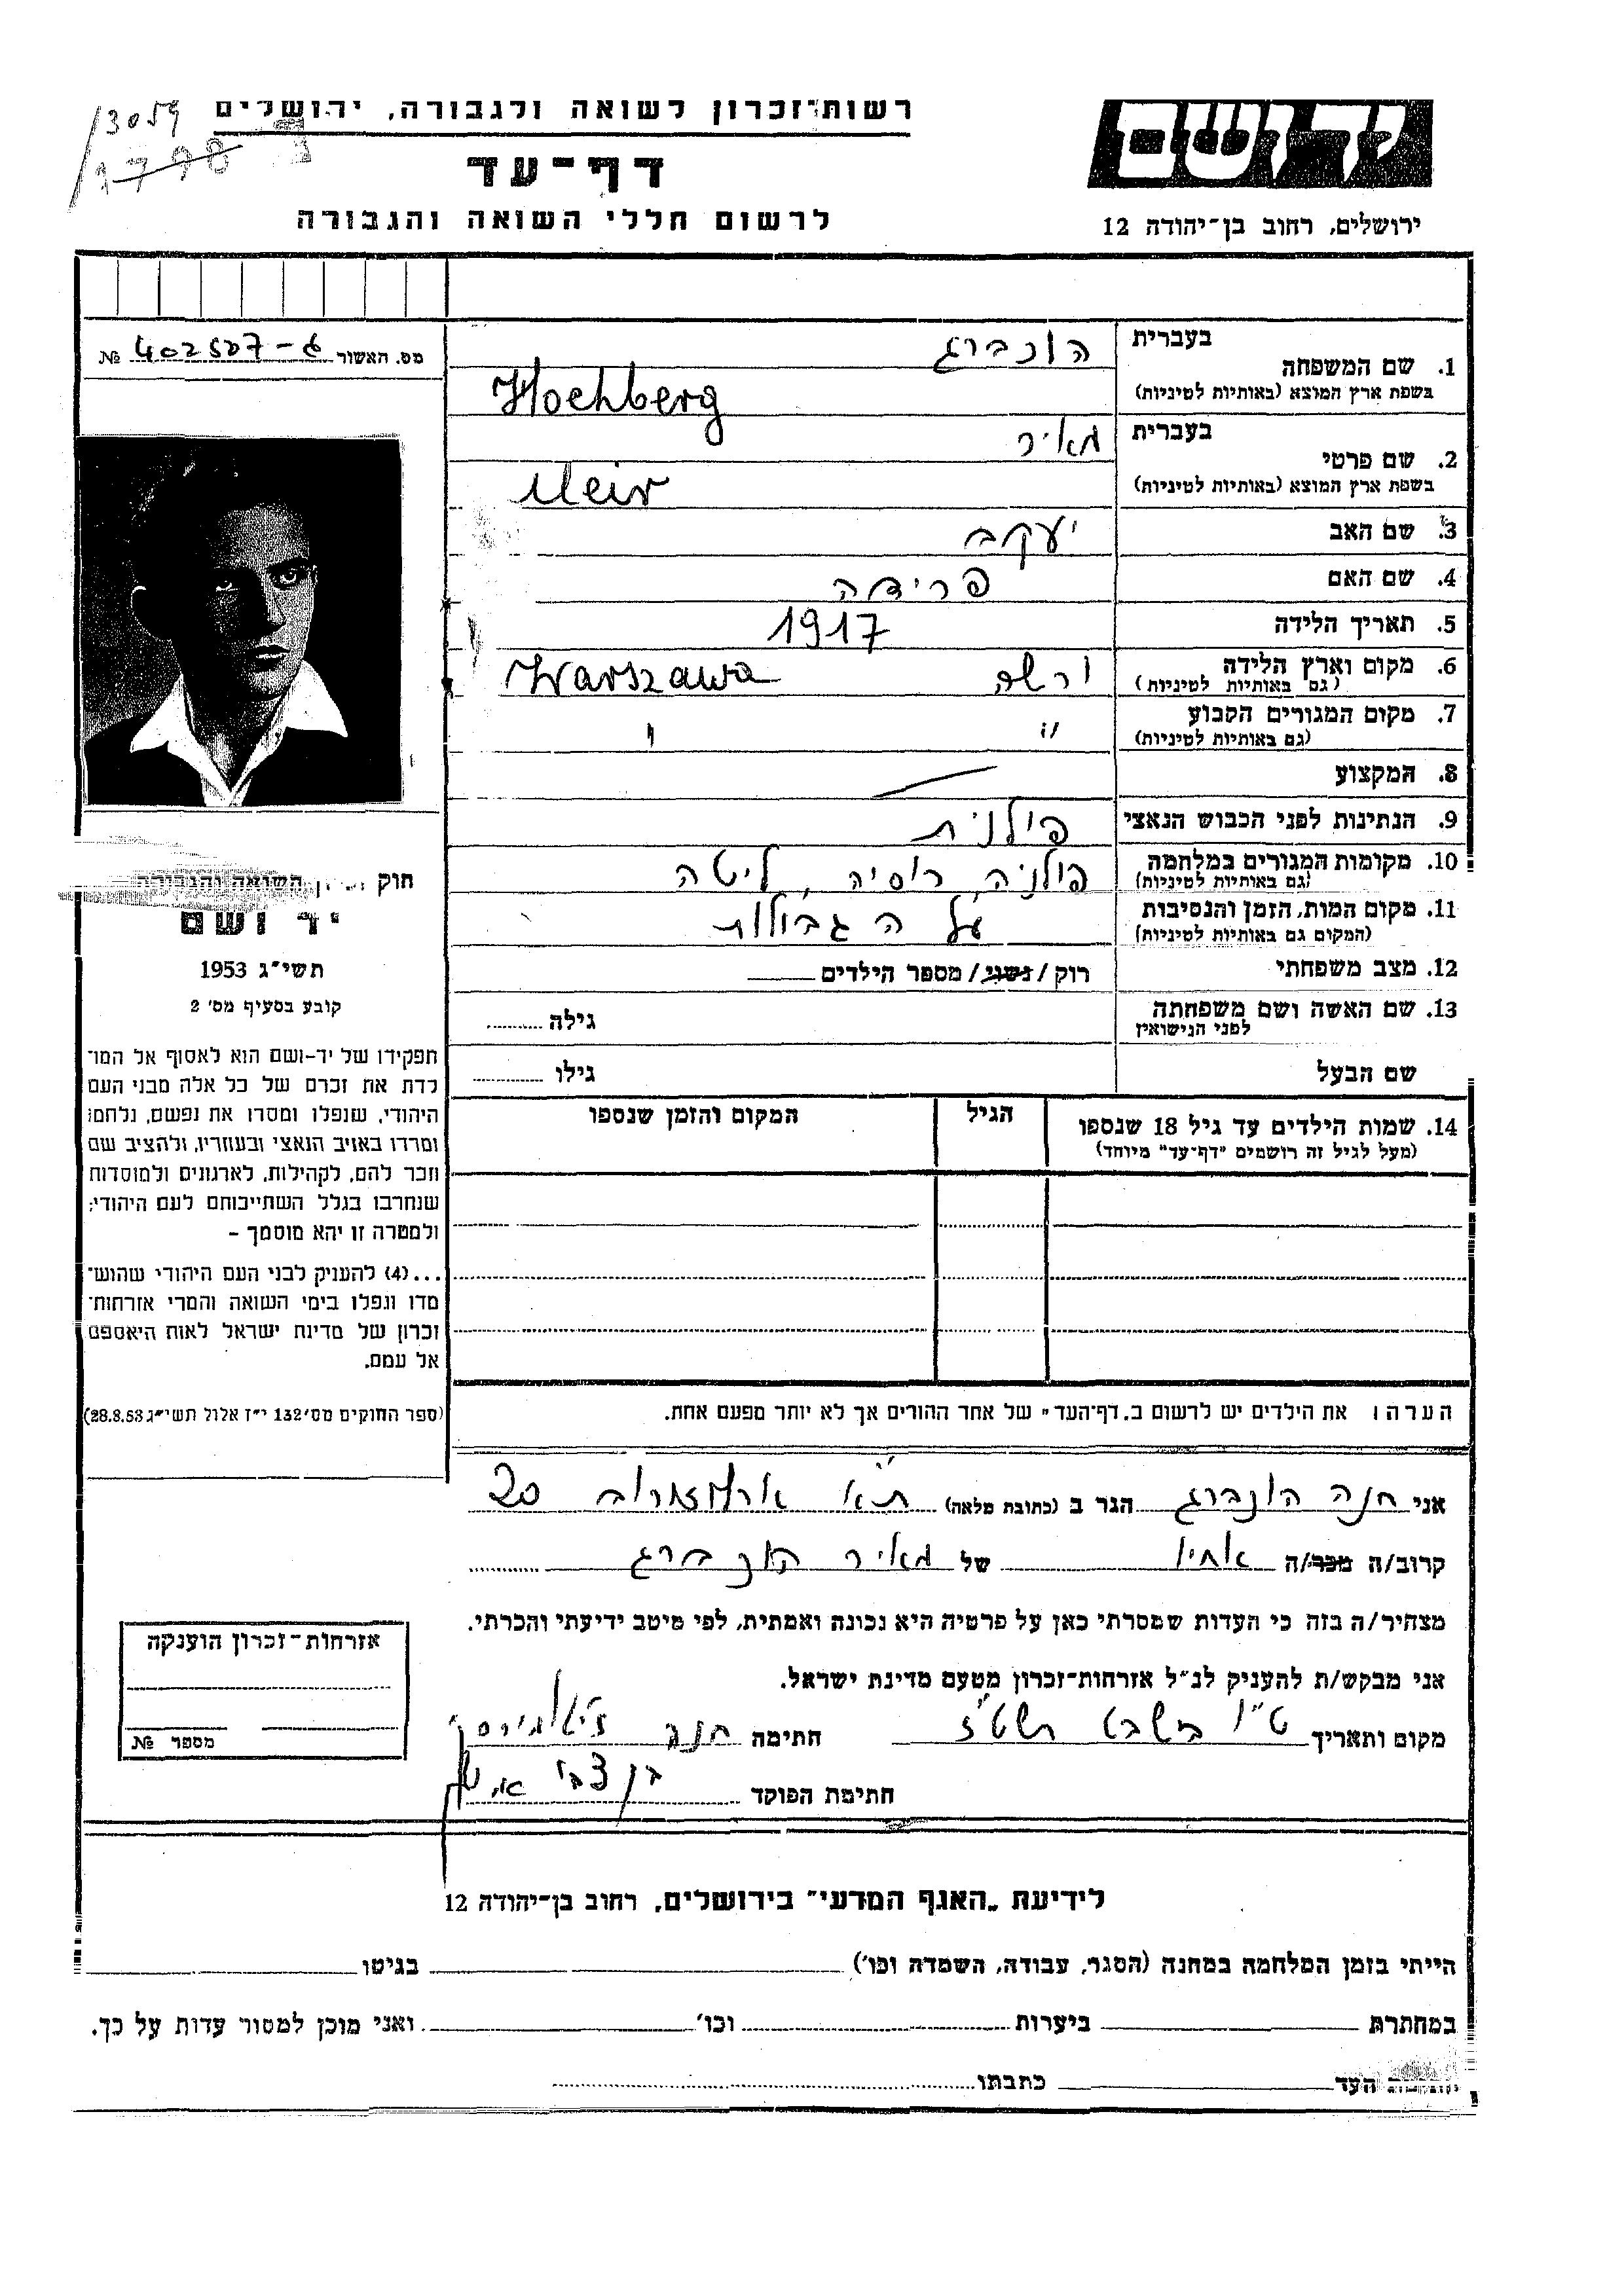 רשות־זכרון לשואה ולגבורה, ירושלים
דף־עד
לרשום חללי השואה והגבורה
יד ושם
ירושלים, רחוב בן־יהודה 12
13059
1798
מס. האשור 402507-6 №
1. שם המשפחה
בעברית הוכברג
בשפת ארץ המוצא (באותיות לטיניות) Hochberg
2. שם פרטי
בעברית מאיר
בשפת ארץ המוצא (באותיות לטיניות) Meir
3. שם האב יעקב
4. שם האם פרידה
5. תאריך הלידה 1917
6. מקום וארץ הלידה ורשה Warszawa
(גם באותיות לטיניות)
7. מקום המגורים הקבוע " "
(גם באותיות לטיניות)
8. המקצוע
9. הנתינות לפני הכבוש הנאצי פולנית
10. מקומות המגורים במלחמה פולניה, רוסיה, ליטה
(גם באותיות לטיניות)
11. מקום המות, הזמן והנסיבות על הגבולות
(המקום גם באותיות לטיניות)
12. מצב משפחתי רוק / נשוי / מספר הילדים
13. שם האשה ושם משפחתה גילה
לפני הנישואין
שם הבעל גילו
14. שמות הילדים עד גיל 18 שנספו הגיל המקום והזמן שנספו
(מעל לגיל זה רושמים "דף־עד" מיוחד)
הערה: את הילדים יש לרשום ב"דף־העד" של אחד ההורים אך לא יותר מפעם אחת.
חוק השואה והגבורה
יד ושם
תשי"ג 1953
קובע בסעיף מס' 2
תפקידו של יד-ושם הוא לאסוף אל המו־
לדת את זכרם של כל אלה מבני העם
היהודי, שנפלו ומסרו את נפשם, נלחמו
ומרדו באויב הנאצי ובעוזריו, ולהציב שם
וזכר להם, לקהילות, לארגונים ולמוסדות
שנחרבו בגלל השתייכותם לעם היהודי;
ולמטרה זו יהא מוסמך –
...(4) להעניק לבני העם היהודי שהוש־
מדו ונפלו בימי השואה והמרי אזרחות־
זכרון של מדינת ישראל לאות היאספם
אל עמם.
(ספר החוקים מס' 132 י"ז אלול תשי"ג 28.8.53)
אני חנה הוכברג הגר ב (כתובת מלאה) ת"א ארלוזורוב 20
קרוב/ה מכר/ה אחיו של מאיר הוכברג
מצהיר/ה בזה כי העדות שמסרתי כאן על פרטיה היא נכונה ואמתית, לפי מיטב ידיעתי והכרתי.
אני מבקש/ת להעניק לנ"ל אזרחות־זכרון מטעם מדינת ישראל.
מקום ותאריך ט"ו בשבט תשט"ז חתימה חנה
חתימת הפוקד בן צבי
אזרחות־זכרון הוענקה
מספר №
לידיעת "האגף המדעי" בירושלים, רחוב בן־יהודה 12
הייתי בזמן המלחמה במחנה (הסגר, עבודה, השמדה וכו') בגיטו
במחתרת ביערות וכו' ואני מוכן למסור עדות על כך.
העד כתבתו